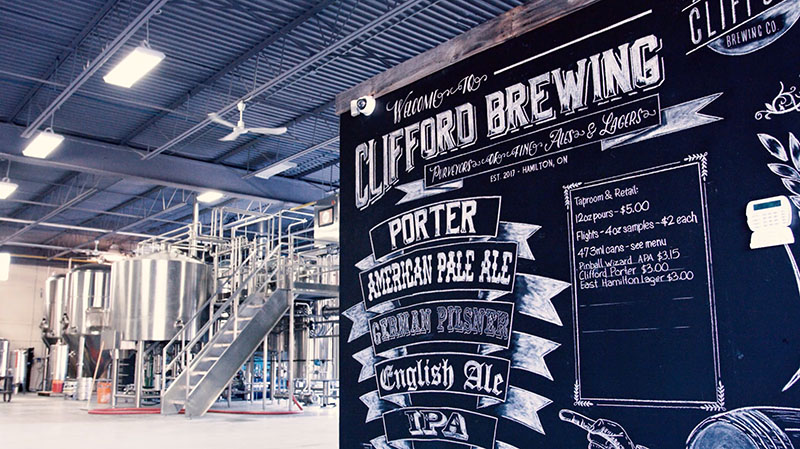 CLIFFORD
BREWING CO.
Welcome To
CLIFFORD BREWING
Purveyors of Fine Ales & Lagers
EST. 2017 - HAMILTON, ON
PORTER
AMERICAN PALE ALE
GERMAN PILSNER
English Ale
IPA
Taproom & Retail:
12oz pours - $5.00
Flights - 4oz samples - $2 each
473ml cans - see menu
Pinball Wizard APA $3.15
Clifford Porter $3.00
East Hamilton Lager $3.00